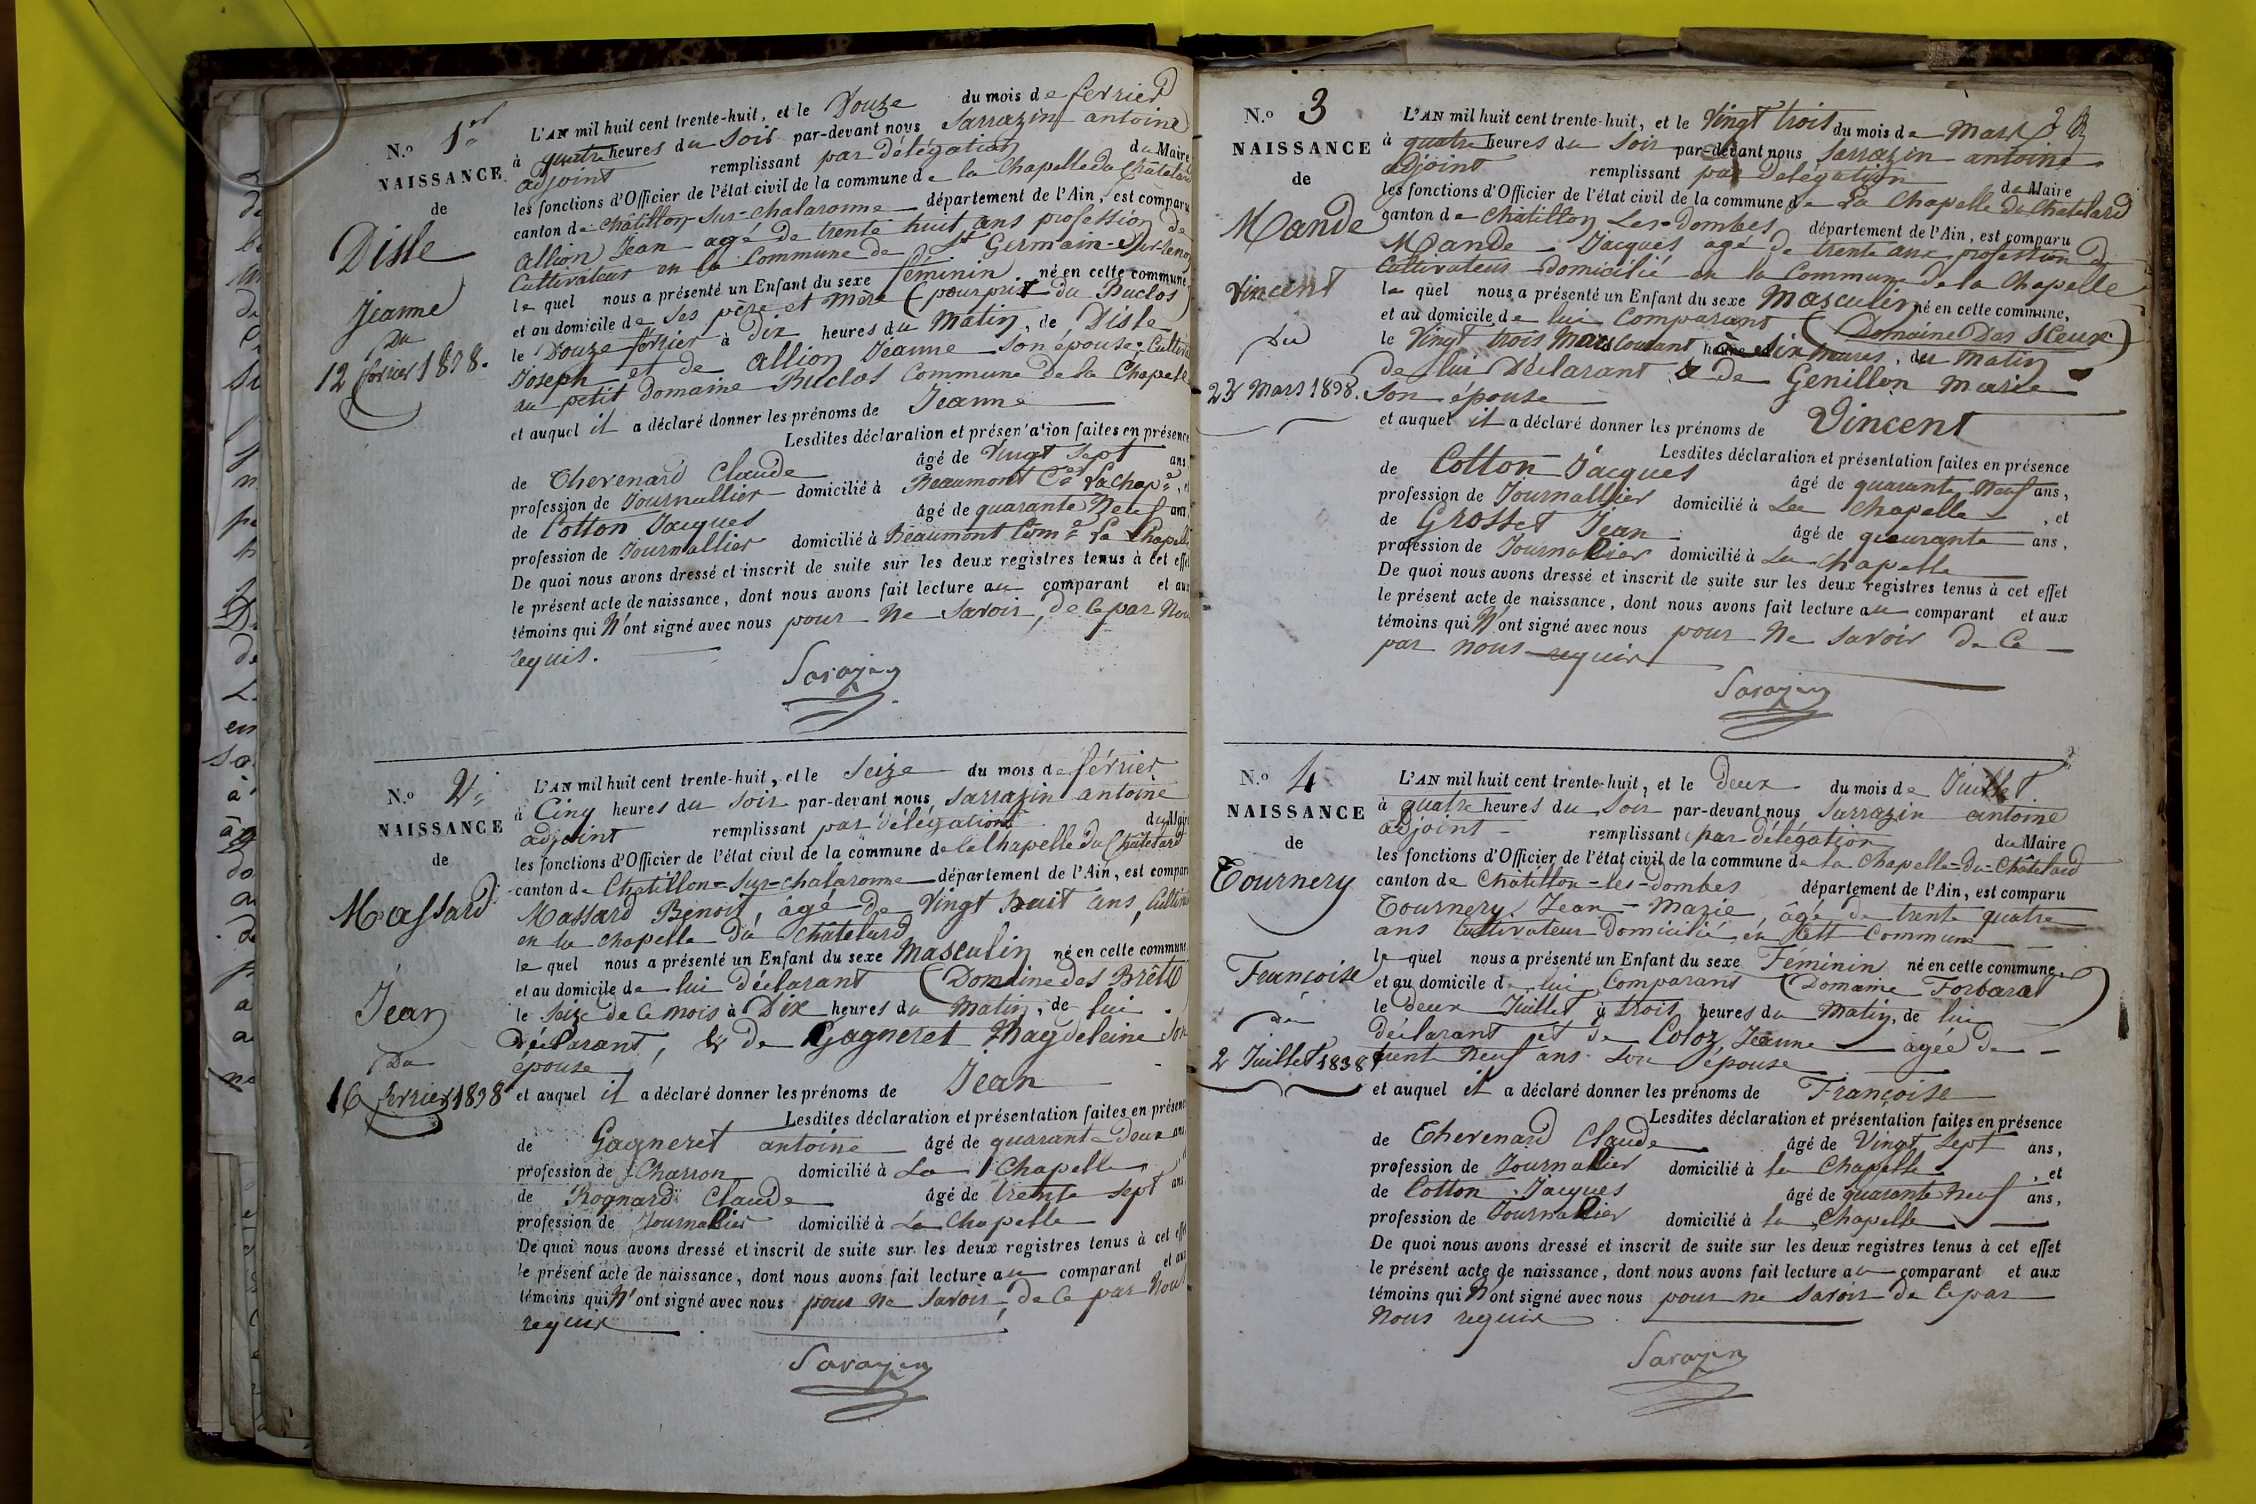 N.º 1er
NAISSANCE
de
Disle
Jeanne
Du
12 février 1838.
L'AN mil huit cent trente-huit, et le Douze du mois de ferrier
à quatre heures du soir par-devant nous Sarrazin antoine
adjoint remplissant par délégation du Maire
les fonctions d'Officier de l'état civil de la commune de la Chapelle du Châtelard
canton de Châtillon-sur-chalaronne département de l'Ain, est comparu
Allion Jean agé de trente huit ans profession de
Cultivateur en la Commune de St Germain-
le quel nous a présenté un Enfant du sexe féminin né en cette commune
et au domicile de ses père et mère (pourprit du Buclos)
le Douze ferrier à Dix heures du Matin, de Disle
Joseph et de Allion Jeanne son épouse, Cultiva
au petit domaine Buclos Commune De la Chapelle
et auquel il a déclaré donner les prénoms de Jeanne
Lesdites déclaration et présentation faites en présence
de Chevenard Claude âgé de Vingt Sept ans
profession de Journallier domicilié à Beaumont Cne Lachap.e, et
de Cotton Jacques âgé de quarante Neuf ans
profession de Journallier domicilié à Beaumont Com.e La Chapelle
De quoi nous avons dressé et inscrit de suite sur les deux registres tenus à cet effet
le présent acte de naissance, dont nous avons fait lecture au comparant et aux
témoins qui N'ont signé avec nous pour ne savoir, de ce par Nou
requis.
Sarazin
N.º 2
NAISSANCE
de
Massard
Jean
Du
16 ferrier 1838
L'AN mil huit cent trente-huit, et le Seize du mois de février
à Cinq heures du soir par-devant nous Sarrazin antoine
adjoint remplissant par délégation du Maire
les fonctions d'Officier de l'état civil de la commune de la Chapelle du Châtelard
canton de Châtillon-sur-chalaronne département de l'Ain, est comparu
Massard Benoit, âgé de Vingt huit ans, Cultiva
en la chapelle du Châtelard
le quel nous a présenté un Enfant du sexe Masculin né en cette commune
et au domicile de lui déclarant (Domaine des Brêtes)
le seize de ce mois à Dix heures du Matin, de lui
déclarant, & de Gagneret Magdeleine son
épouse
et auquel il a déclaré donner les prénoms de Jean
Lesdites déclaration et présentation faites en présence
de Gagneret antoine âgé de quarante Deux ans
profession de Charron domicilié à La Chapelle
de Rognard Claude âgé de trente sept ans
profession de Journalier domicilié à La Chapelle
De quoi nous avons dressé et inscrit de suite sur les deux registres tenus à cet effet
le présent acte de naissance, dont nous avons fait lecture au comparant et aux
témoins qui N'ont signé avec nous pour ne savoir, de Ce par Nous
requis
Sarazin
N.º 3
NAISSANCE
de
Mande
Vincent
Du
23 Mars 1838.
L'AN mil huit cent trente-huit, et le Vingt trois du mois de Mars
à quatre heures du soir par-devant nous Sarrazin antoine
adjoint remplissant par délégation du Maire
les fonctions d'Officier de l'état civil de la commune de La Chapelle du Chatelard
canton de Châtillon Les-Dombes département de l'Ain, est comparu
Mande Jacques agé de trente ans profession de
Cultivateur domicilié en la Commune de la Chapelle
le quel nous a présenté un Enfant du sexe Masculin né en cette commune,
et au domicile de lui Comparant (Domaine Des )
le Vingt trois Mars Courant à Six heures, du matin
de lui Déclarant & de Genillon Marie
son épouse
et auquel il a déclaré donner les prénoms de Vincent
Lesdites déclaration et présentation faites en présence
de Cotton Jacques âgé de quarante Neuf ans,
profession de Journallier domicilié à La Chapelle, et
de Grosset Jean âgé de quarante ans,
profession de Journalier domicilié à La Chapelle
De quoi nous avons dressé et inscrit de suite sur les deux registres tenus à cet effet
le présent acte de naissance, dont nous avons fait lecture au comparant et aux
témoins qui N'ont signé avec nous pour ne savoir de Ce
par nous requis
Sarazin
N.º 4
NAISSANCE
de
Tournery
Françoise
du
2 Juillet 1838
L'AN mil huit cent trente-huit, et le Deux du mois de Juillet
à quatre heures du Soir par-devant nous Sarrazin antoine
adjoint remplissant par délégation du Maire
les fonctions d'Officier de l'état civil de la commune de la Chapelle-du-Châtelard
canton de Châtillon-les-Dombes département de l'Ain, est comparu
Tournery Jean-Marie, âgé de trente quatre
ans Cultivateur Domicilié en Commune
le quel nous a présenté un Enfant du sexe Féminin né en cette commune,
et au domicile de lui Comparant (Domaine Forbarat)
le Deux Juillet à trois heures du Matin, de lui
déclarant et de Coloz Jeanne âgée de
trent Neuf ans son épouse
et auquel il a déclaré donner les prénoms de Françoise
Lesdites déclaration et présentation faites en présence
de Chevenard Claude âgé de Vingt Sept ans,
profession de Journalier domicilié à la Chapelle, et
de Cotton Jacques âgé de quarante Neuf ans,
profession de Journalier domicilié à la Chapelle
De quoi nous avons dressé et inscrit de suite sur les deux registres tenus à cet effet
le présent acte de naissance, dont nous avons fait lecture au comparant et aux
témoins qui N'ont signé avec nous pour ne savoir de Ce par
Nous requis
Sarazin